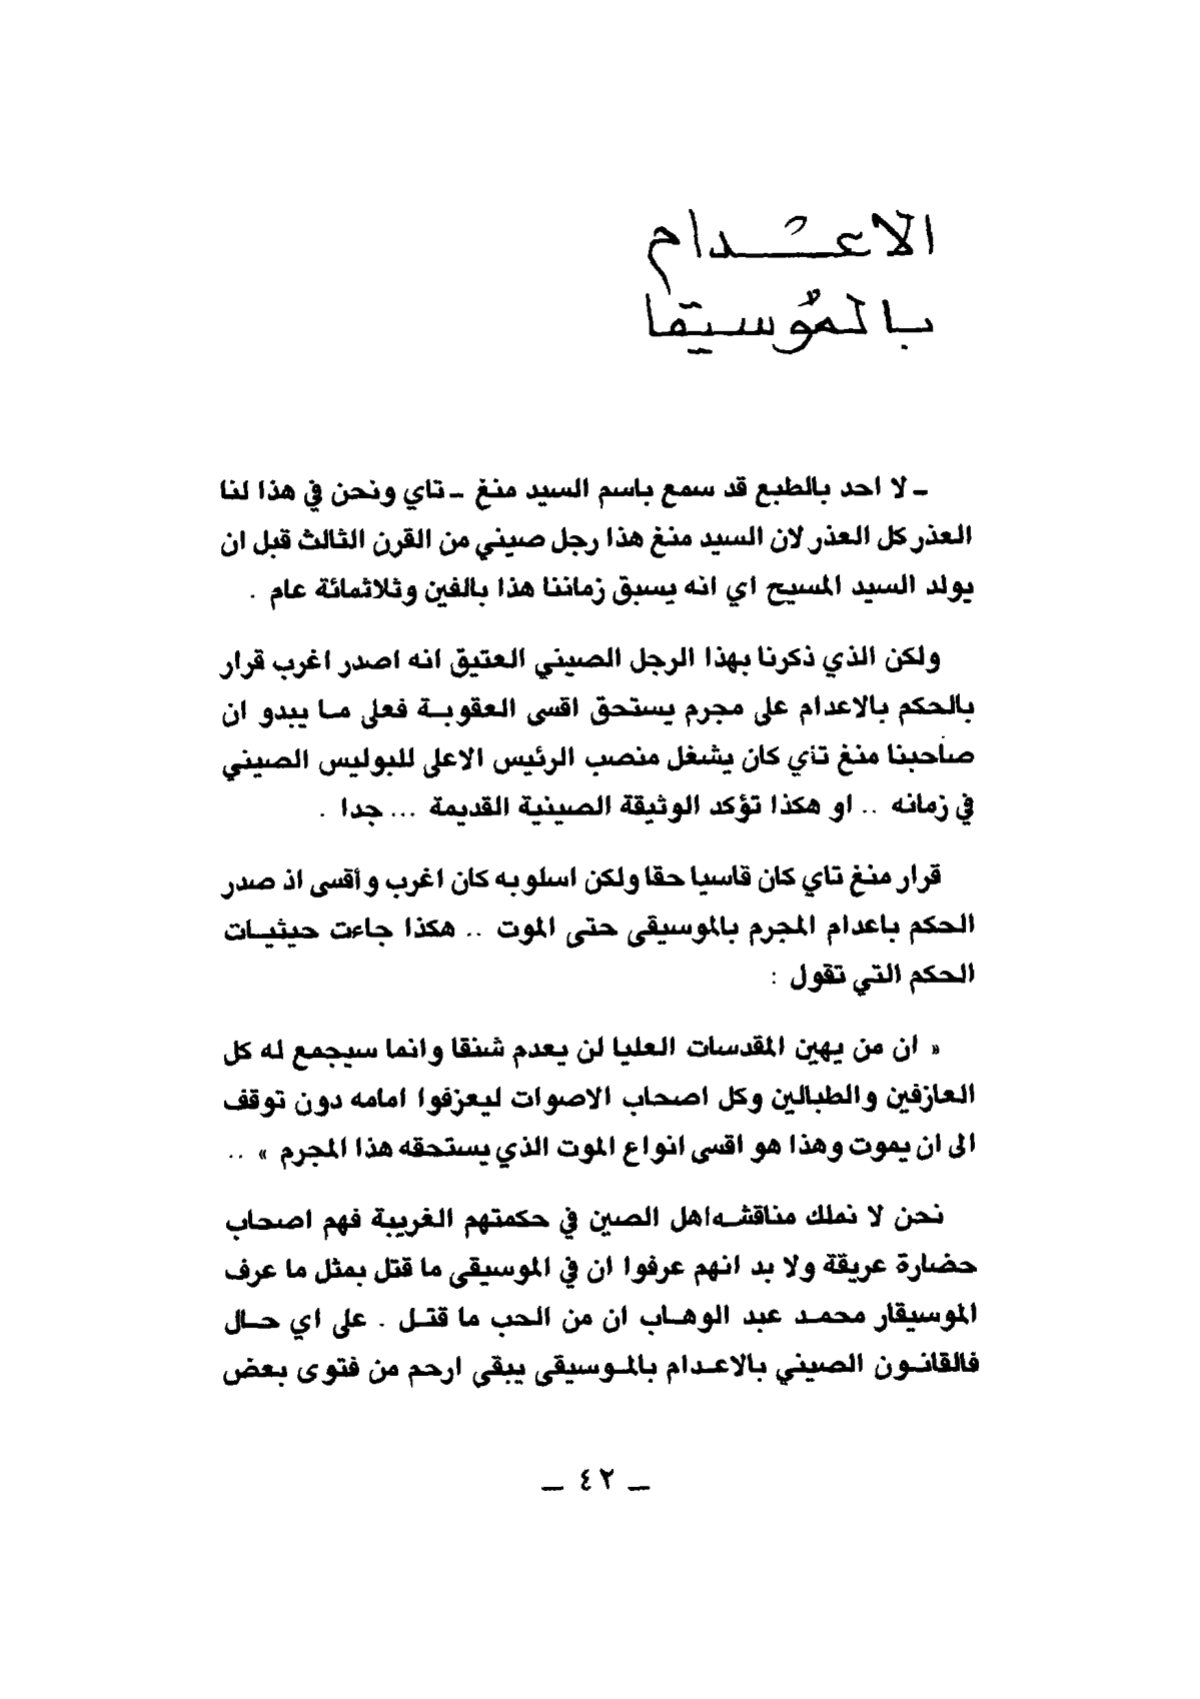 الاعدام
بالمُوسيقا
ـ لا احد بالطبع قد سمع باسم السيد منغ ـ تاي ونحن في هذا لنا
العذر كل العذر لان السيد منغ هذا رجل صيني من القرن الثالث قبل ان
يولد السيد المسيح اي انه يسبق زماننا هذا بالفين وثلاثمائة عام .
ولكن الذي ذكرنا بهذا الرجل الصيني العتيق انه اصدر اغرب قرار
بالحكم بالاعدام على مجرم يستحق اقسى العقوبة فعلى ما يبدو ان
صاحبنا منغ تاي كان يشغل منصب الرئيس الاعلى للبوليس الصيني
في زمانه .. او هكذا تؤكد الوثيقة الصينية القديمة ... جدا .
قرار منغ تاي كان قاسيا حقا ولكن اسلوبه كان اغرب وأقسى اذ صدر
الحكم باعدام المجرم بالموسيقى حتى الموت .. هكذا جاءت حيثيات
الحكم التي تقول :
« ان من يهين المقدسات العليا لن يعدم شنقا وانما سيجمع له كل
العازفين والطبالين وكل اصحاب الاصوات ليعزفوا امامه دون توقف
الى ان يموت وهذا هو اقسى انواع الموت الذي يستحقه هذا المجرم » ..
نحن لا نملك مناقشه اهل الصين في حكمتهم الغريبة فهم اصحاب
حضارة عريقة ولا بد انهم عرفوا ان في الموسيقى ما قتل بمثل ما عرف
الموسيقار محمد عبد الوهاب ان من الحب ما قتل . على اي حال
فالقانون الصيني بالاعدام بالموسيقى يبقى ارحم من فتوى بعض
ـ ٤٢ ـ